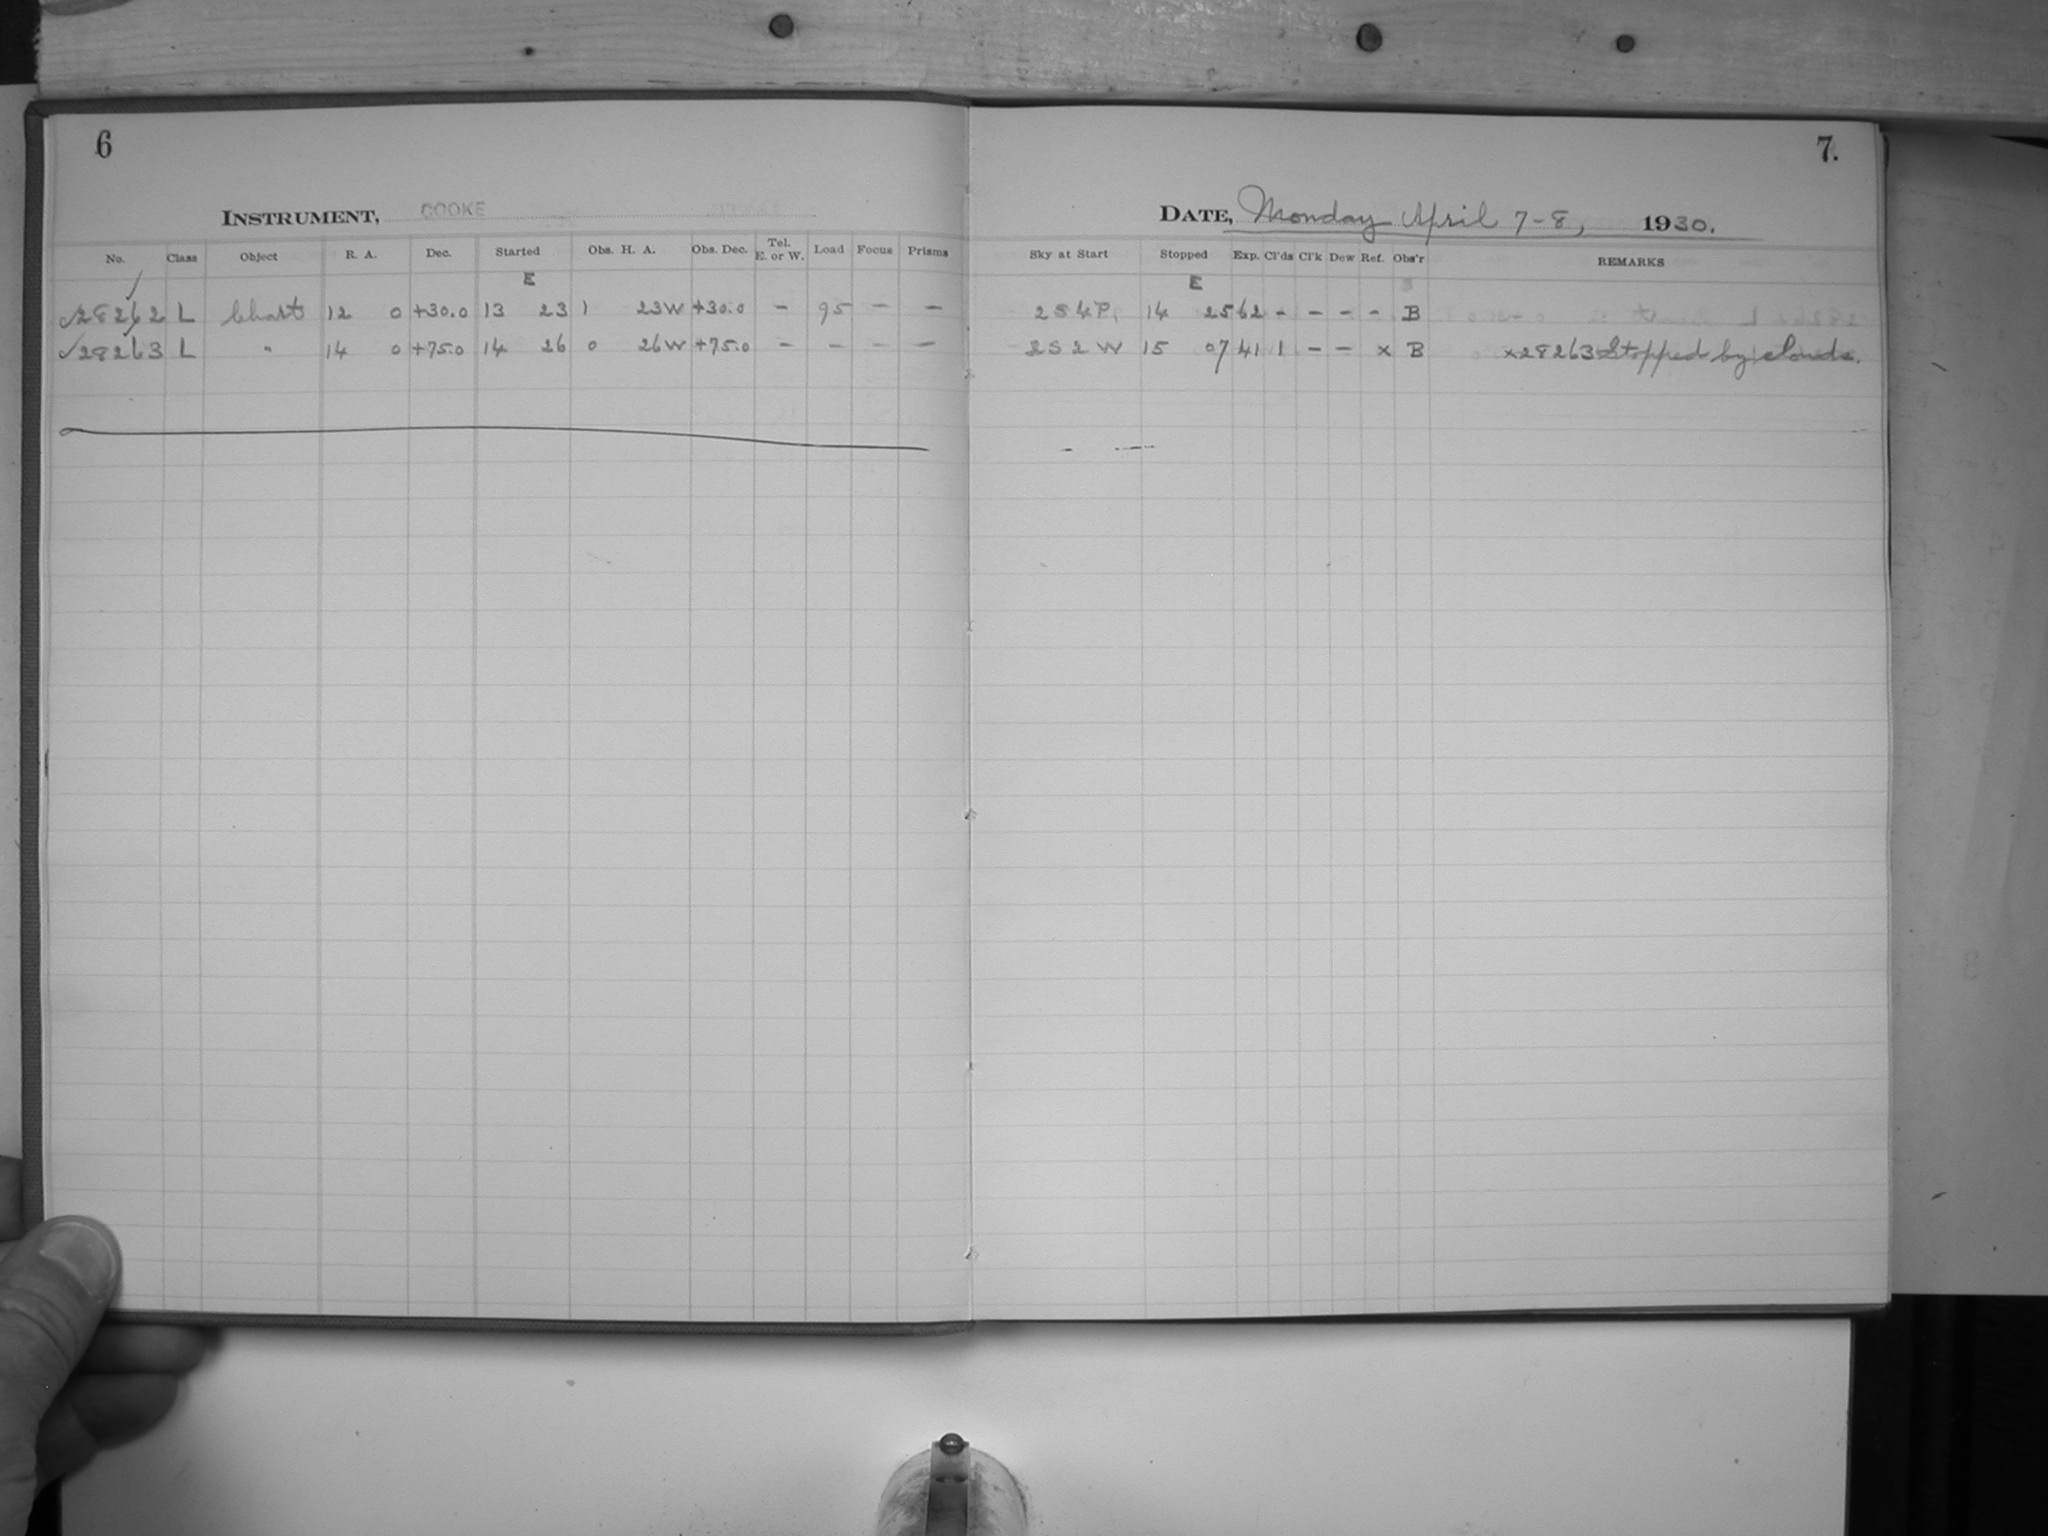 6
INSTRUMENT, COOKE
No. Class Object R. A. Dec. Started Obs. H. A. Obs. Dec. Tel. E. or W. Load Focus Prisms
E
✓28262 L Chart 12 0 +30.0 13 23 1 23W +30.0 - 95 - -
✓28263 L " 14 0 +75.0 14 26 0 26W +75.0 - - - -
7.
DATE, Monday April 7-8, 1930.
Sky at Start Stopped Exp. Cl'ds Cl'k Dew Ref. Obs'r REMARKS
E
2 S 4 P. 14 25 62 - - - - B
2 S 2 W 15 07 41 1 - - x B x28263 Stopped by clouds.